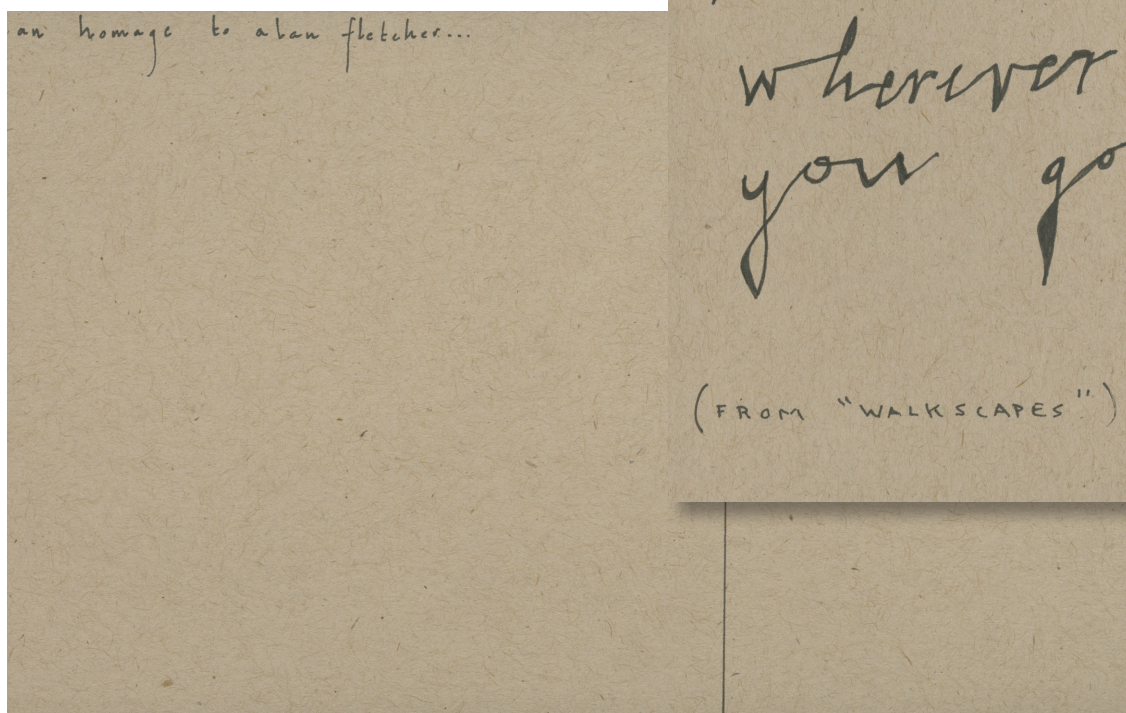 an homage to alan fletcher...
wherever
you go
(FROM "WALKSCAPES")